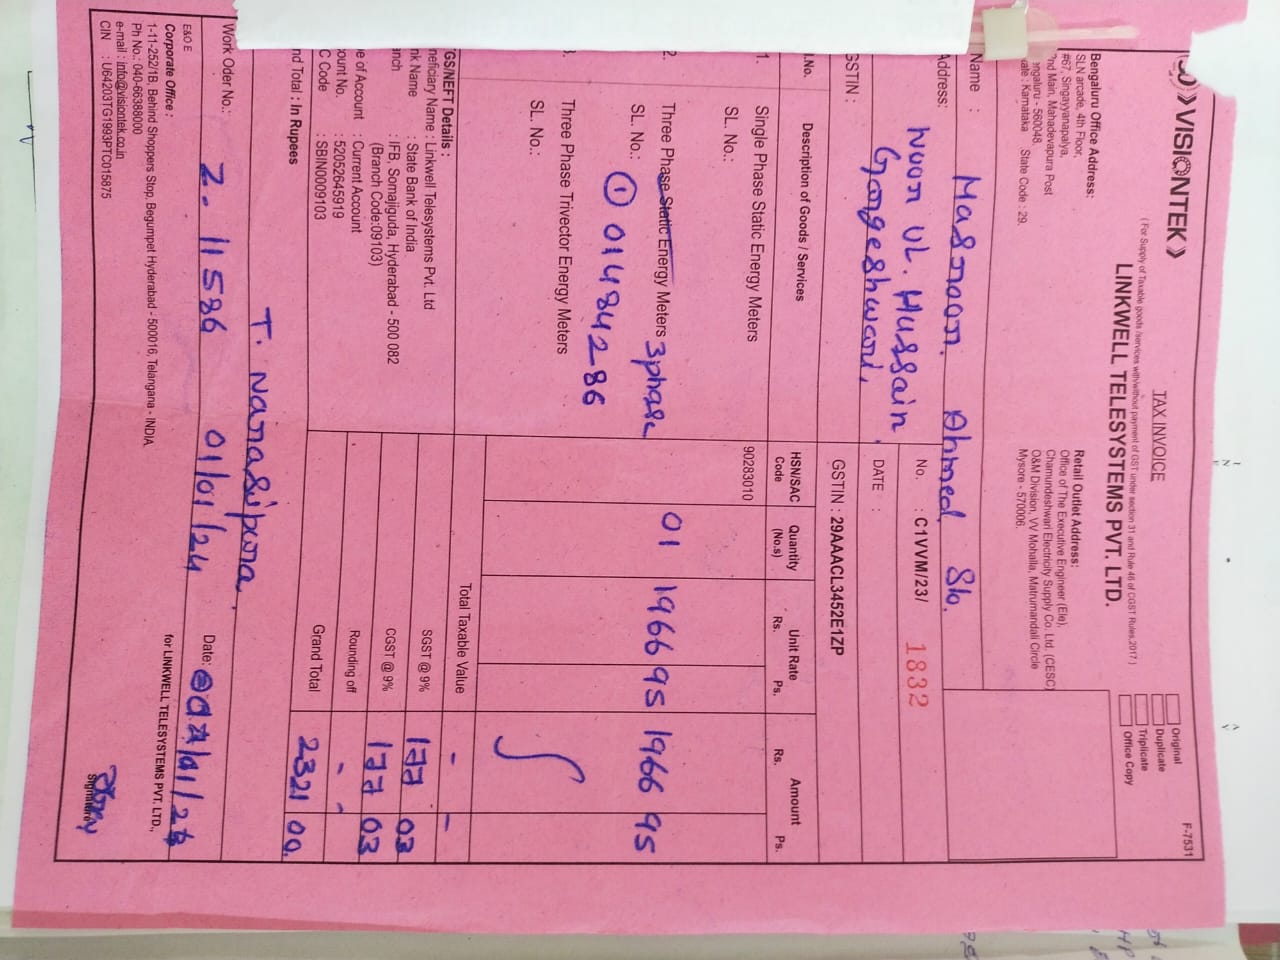 VISIONTEK
TAX INVOICE
( For Supply of Taxable goods /services with/without payment of GST under section 31 and Rule 46 of CGST Rules,2017 )
LINKWELL TELESYSTEMS PVT. LTD.
F-7531
Original
Duplicate
Triplicate
Office Copy
Bengaluru Office Address:
SLN arcade, 4th Floor,
#67, Singayyanapalya,
2nd Main, Mahadevapura Post
engaluru - 560048.
ate : Karnataka State Code : 29.
Retail Outlet Address:
Office of The Executive Engineer (Ele),
Chamundeshwari Electricity Supply Co. Ltd. (CESC)
O&M Division, VV Mohalla, Matrumandali Circle
Mysore - 570006.
Name : Masnoon. Ahmed S/o.
Address: Noor UL. Hussain
Gargeshwari,
No. : C1VVM/23/ 1832
DATE :
GSTIN :
GSTIN : 29AAACL3452E1ZP
.No. Description of Goods / Services HSN/SAC Code Quantity (No.s) Unit Rate Rs. Ps. Amount Rs. Ps.
1. Single Phase Static Energy Meters 90283010
SL. No.:
2. Three Phase Static Energy Meters 3 phase 01 1966 95 1966 95
SL. No.: ① 01484 2-86
3. Three Phase Trivector Energy Meters
SL. No.:
Total Taxable Value - -
TGS/NEFT Details :
neficiary Name : Linkwell Telesystems Pvt. Ltd
nk Name : State Bank of India
anch : IFB, Somajiguda, Hyderabad - 500 082
(Branch Code:09103)
pe of Account : Current Account
ount No. : 52052645919
C Code : SBIN0009103
SGST @ 9% 177 03
CGST @ 9% 177 03
Rounding off - -
Grand Total 2321 00.
nd Total : In Rupees
T. Narasipora.
Work Oder No.: 2. 11586 01/01/24 Date:
E&O E
for LINKWELL TELESYSTEMS PVT. LTD.,
Corporate Office :
1-11-252/1B, Behind Shoppers Stop, Begumpet Hyderabad - 500016, Telangana - INDIA.
Ph No.: 040-66388000
e-mail : info@visiontek.co.in
CIN : U64203TG1993PTC015875
Signature